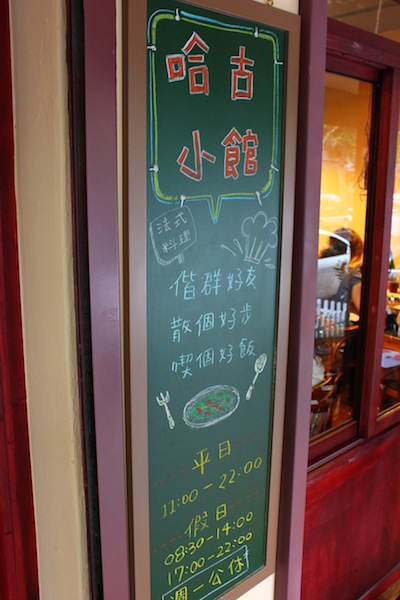 哈古
小館
法式
料理
偕群好友
散個好步
喫個好飯
平日
11:00-22:00
假日
08:30-14:00
17:00-22:00
週一公休